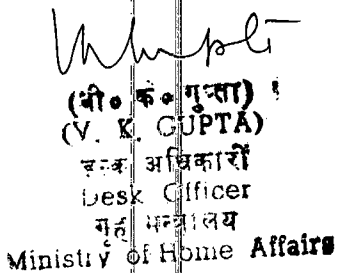 (वी० के० गुप्ता)
(V. K. GUPTA)
अधिकारी
Desk Officer
गृह मन्त्रालय
Ministry of Home Affairs